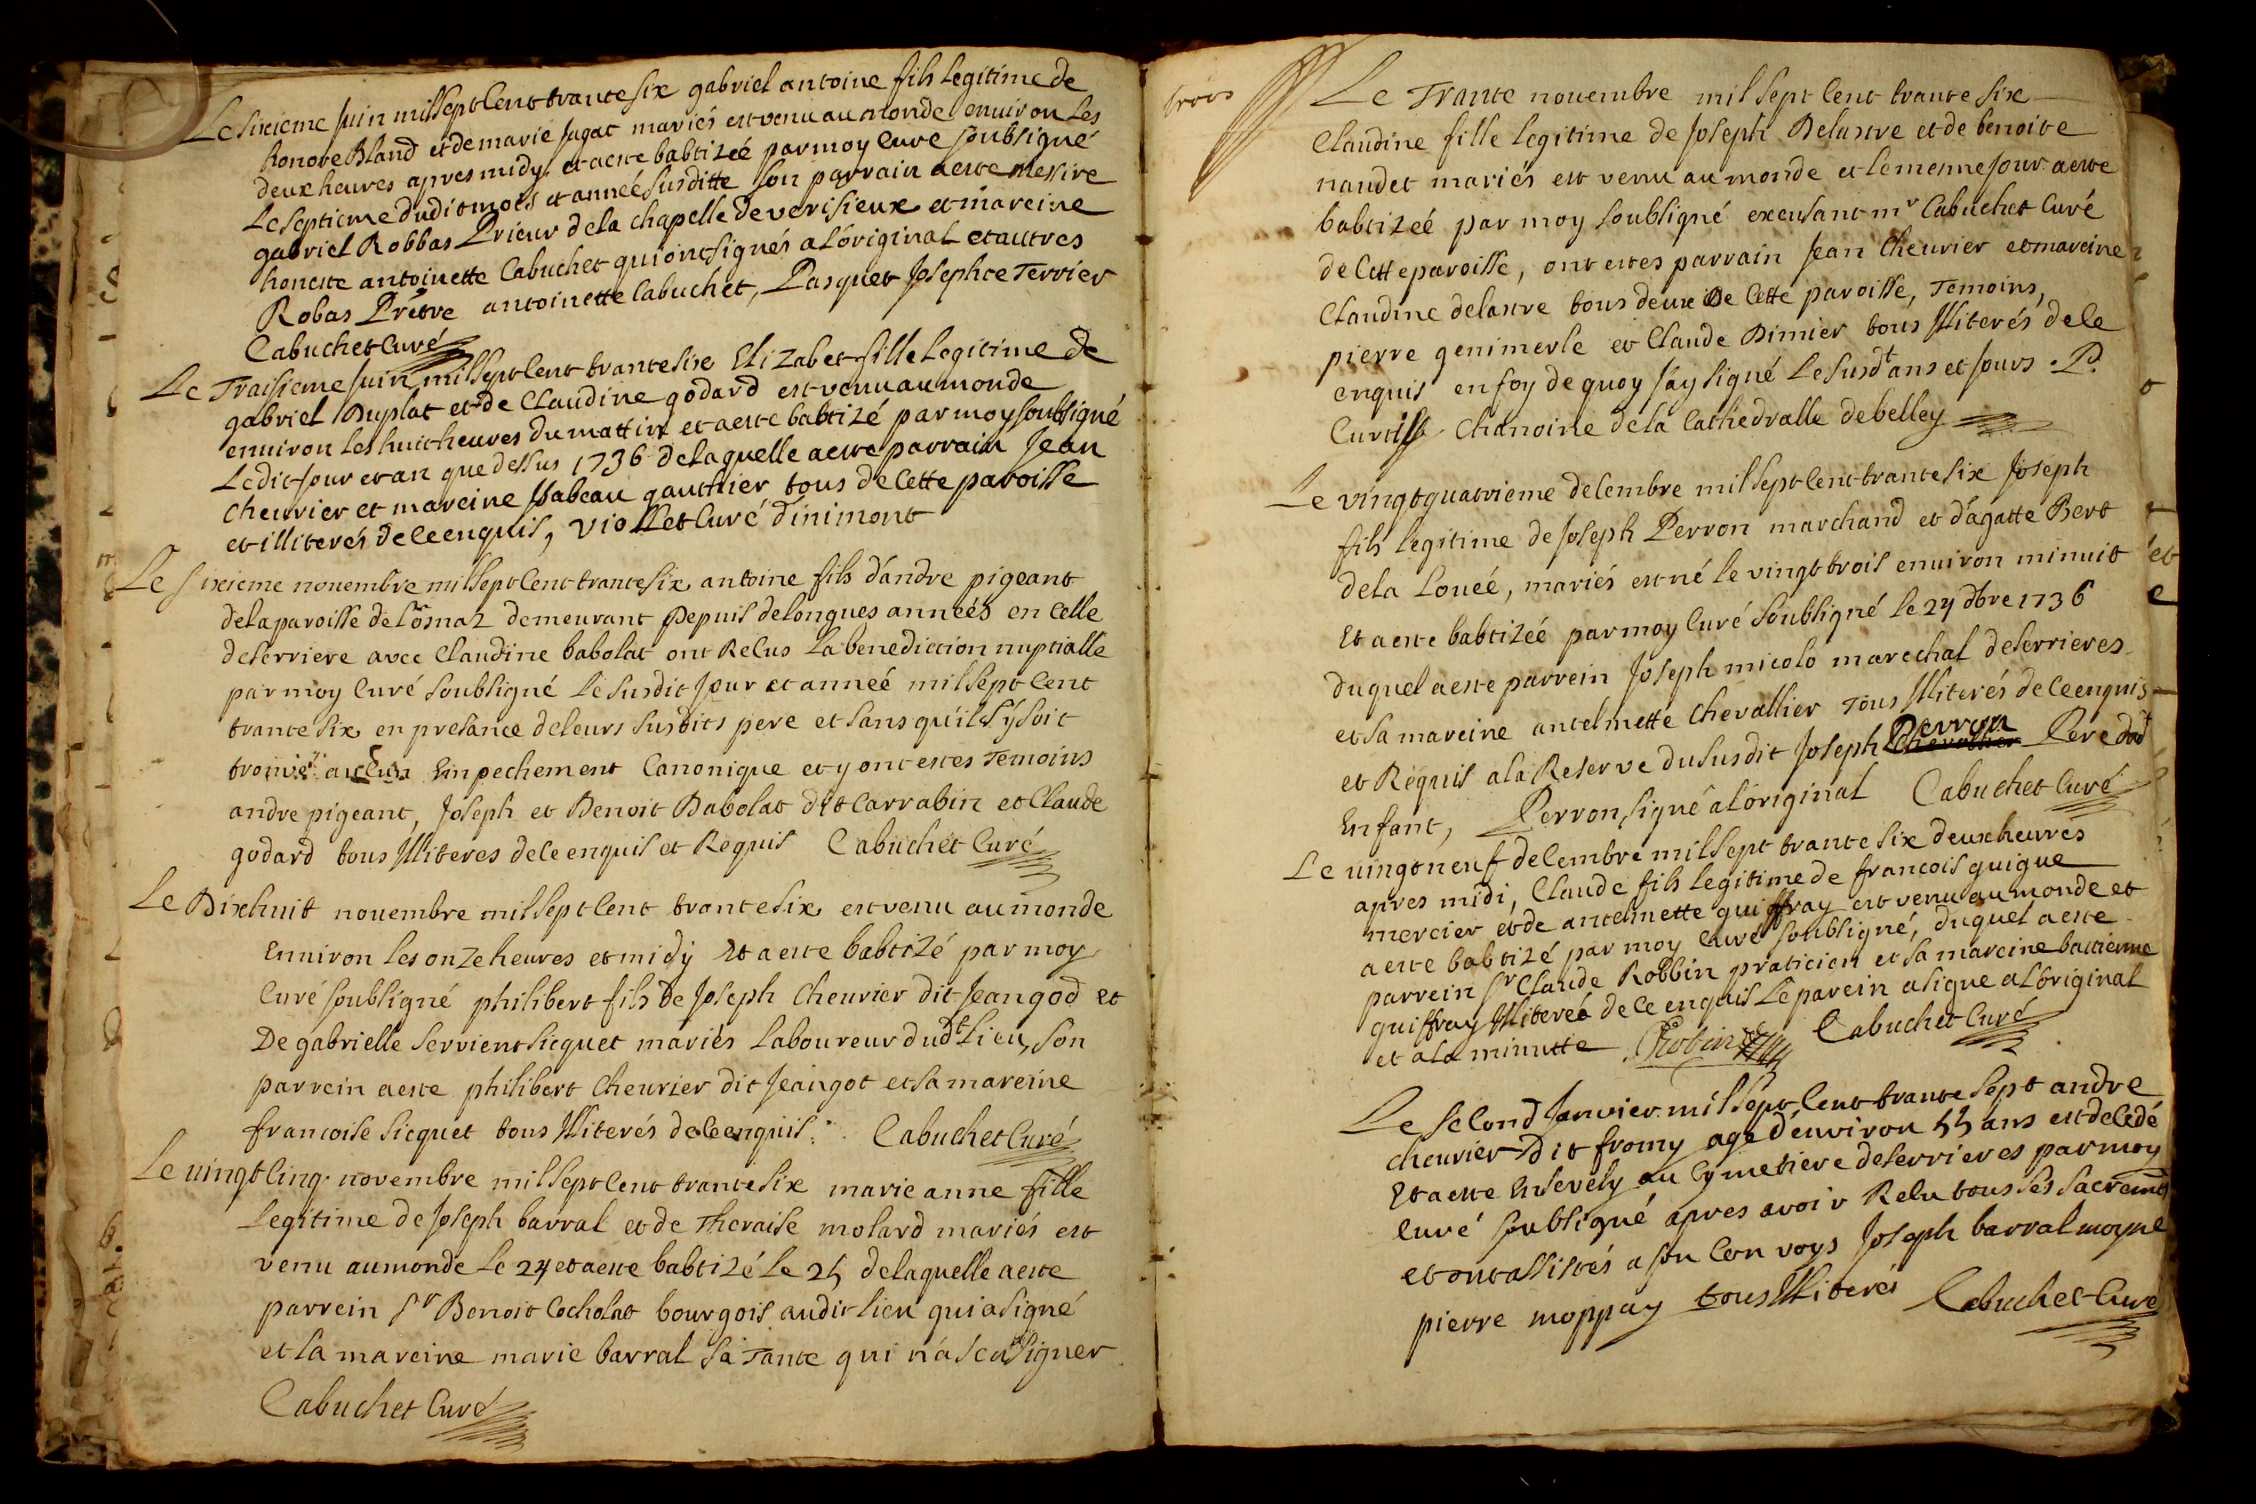 Le sixieme Juin mil sept Cent trante six gabriel antoine fils legitime de
honore Bland et de marie Jugat mariés est venu au monde environ les
deux heures apres midy, et a este babtizeé par moy Curé soubsigné
Le septieme dudit mois et anneé susditte son parrain a este messire
gabriel Robbas Prieur de la chapelle de verisieux et mareine
honeste antoinette Cabuchet qui ont signés a l'original et autres
Robas Prêtre antoinette Cabuchet, Pasquet Josephte Terrier
Cabuchet Curé
Le Traisieme Juin mil sept Cent trante six Elizabet fille legitime de
gabriel Duplat et de Claudine godard est venu au monde
environ les huit heures du mattin et a este babtizé par moy soubsigné
Le dit jour et an que dessus 1736 de laquelle a este parrain Jean
cheurier et mareine Isabeau gauthier tous de Cette paroisse
et illiterés de Ce enquis, viollet Curé d'inimont
Le sixieme nouembre mil sept Cent trante six antoine fils d'andre pigeant
de la paroisse de Lomnaz demeurant Depuis de longues anneés en Celle
de serriere avec Claudine babolat ont Recus La benediction nuptialle
par moy Curé soubsigné Le susdit Jour et anneé mil sept Cent
trante six en presance de leurs susdits pere et sans qu'il s'y soit
trouvé aucun Empechement Canonique et y ont estes Temoins
andre pigeant, Joseph et Benoit Babolat dit Carrabin et Claude
godard tous Illiteres de Ce enquis et Requis Cabuchet Curé
Le Dixhuit nouembre mil sept Cent trante six est venu au monde
Environ les onze heures et midy Et a este babtizé par moy
Curé soubsigné philibert fils de Joseph Cheurier dit Jeangod et
De gabrielle servient sicquet mariés Laboureur dudt Lieu, son
parrein a este philibert Cheurier dit Jeangot et sa mareine
francoise sicquet tous Illiterés de Ce enquis. Cabuchet Curé
Le uingt Cinq novembre mil sept Cent trante six marie anne fille
Legitime de Joseph barral et de Theraise molard mariés est
venu au monde Le 24 et a este babtizé Le 25 de laquelle a este
parrein sr Benoit Cocholat bourgois audit lieu qui a signé
et La mareine marie barral sa Tante qui n'a sceu signer
Cabuchet Curé
trois
Le Trante nouembre mil sept Cent trante six
Claudine fille legitime de Joseph Delastre et de benoite
naudet mariés est venu au monde et le mesme Jour a este
babtizeé par moy soubsigné excusant mr Cabuchet Curé
de Cette paroisse, ont estes parrain Jean Cheurier et mareine
Claudine delastre tous deux De Cette paroisse, Temoins,
pierre genimerle et Claude Dimier tous Illiterés de Ce
enquis en foy de quoy J'ay signé Le susdt ans et Jours . P.
Curtil Chanoine de la Cathedralle de belley
Le vingt quatrieme decembre mil sept Cent trante six Joseph
fils legitime de Joseph Perron marchand et d'agatte Bert
de la Loueé, mariés est né le vingt trois environ minuit
Et a este babtizeé par moy Curé soubsigné le 24 dbre 1736
duquel a este parrein Joseph micolo marechal de serrieres
et sa mareine antelmette chevallier Tous Illiterés de Ce enquis
et Requis a la Reserve du susdit Joseph Perron Pere dudt
Enfant, Perron, signé a l'original Cabuchet Curé
Le uingt neuf decembre mil sept trante six deux heures
apres midi, Claude fils legitime de francois guigue
mercier et de antelmette guiffray est venu au monde et
a este babtizé par moy Curé soubsigné, duquel a este
parrein sr Claude Robbin praticien et sa mareine
guiffray Illitereé de Ce enquis Le parein a signe a L'original
et a la minutte Robin Cabuchet Curé
Le second Janvier mil sept Cent trante sept andre
cheurier Dit fromy age d'environ 55 ans est decedé
Et a este Ensevely au Cymetiere de serrieres par moy
Curé soubsigné apres avoir Relu tous ses sacremts
et ont assistés a son Convoys Joseph barral moyne
pierre moppay tous Illiterés Cabuchet Curé